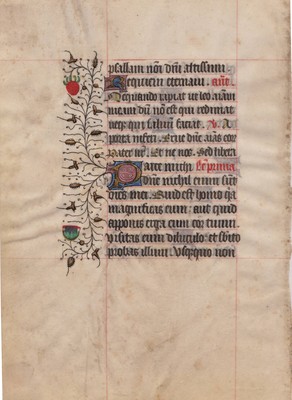 psallam nōi dñi altissimi
Requiem eternam. añe
Nequando rapiat ut leo aīam
meam dūm nō est qui redimat
neqz qui saluum faciat. V. A
porta inferi. Erue dñe aīas eor
Pater nr. Et ne nos. Sed libera
Parce michi Lc̄ prima
dñe nichil enim sūt
dies mei. Quid est homo qa
magnificas eum: aut quid
apponis erga eum cor tuum
visitas eum diluculo: et subito
probas illum. Usquequo non